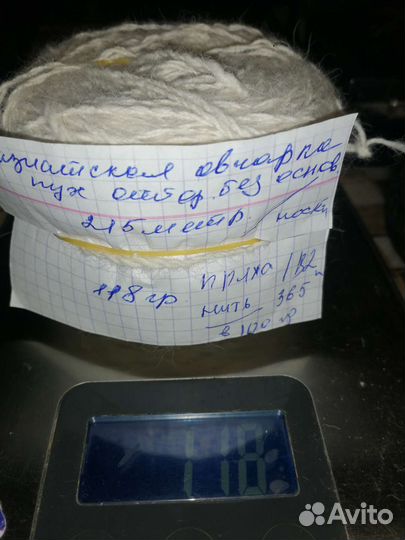 азиатская овчарка
пух отбор. без основ
215 метр. носки
118 гр.
пряха 182
нить 365
в 100 гр
118
Avito